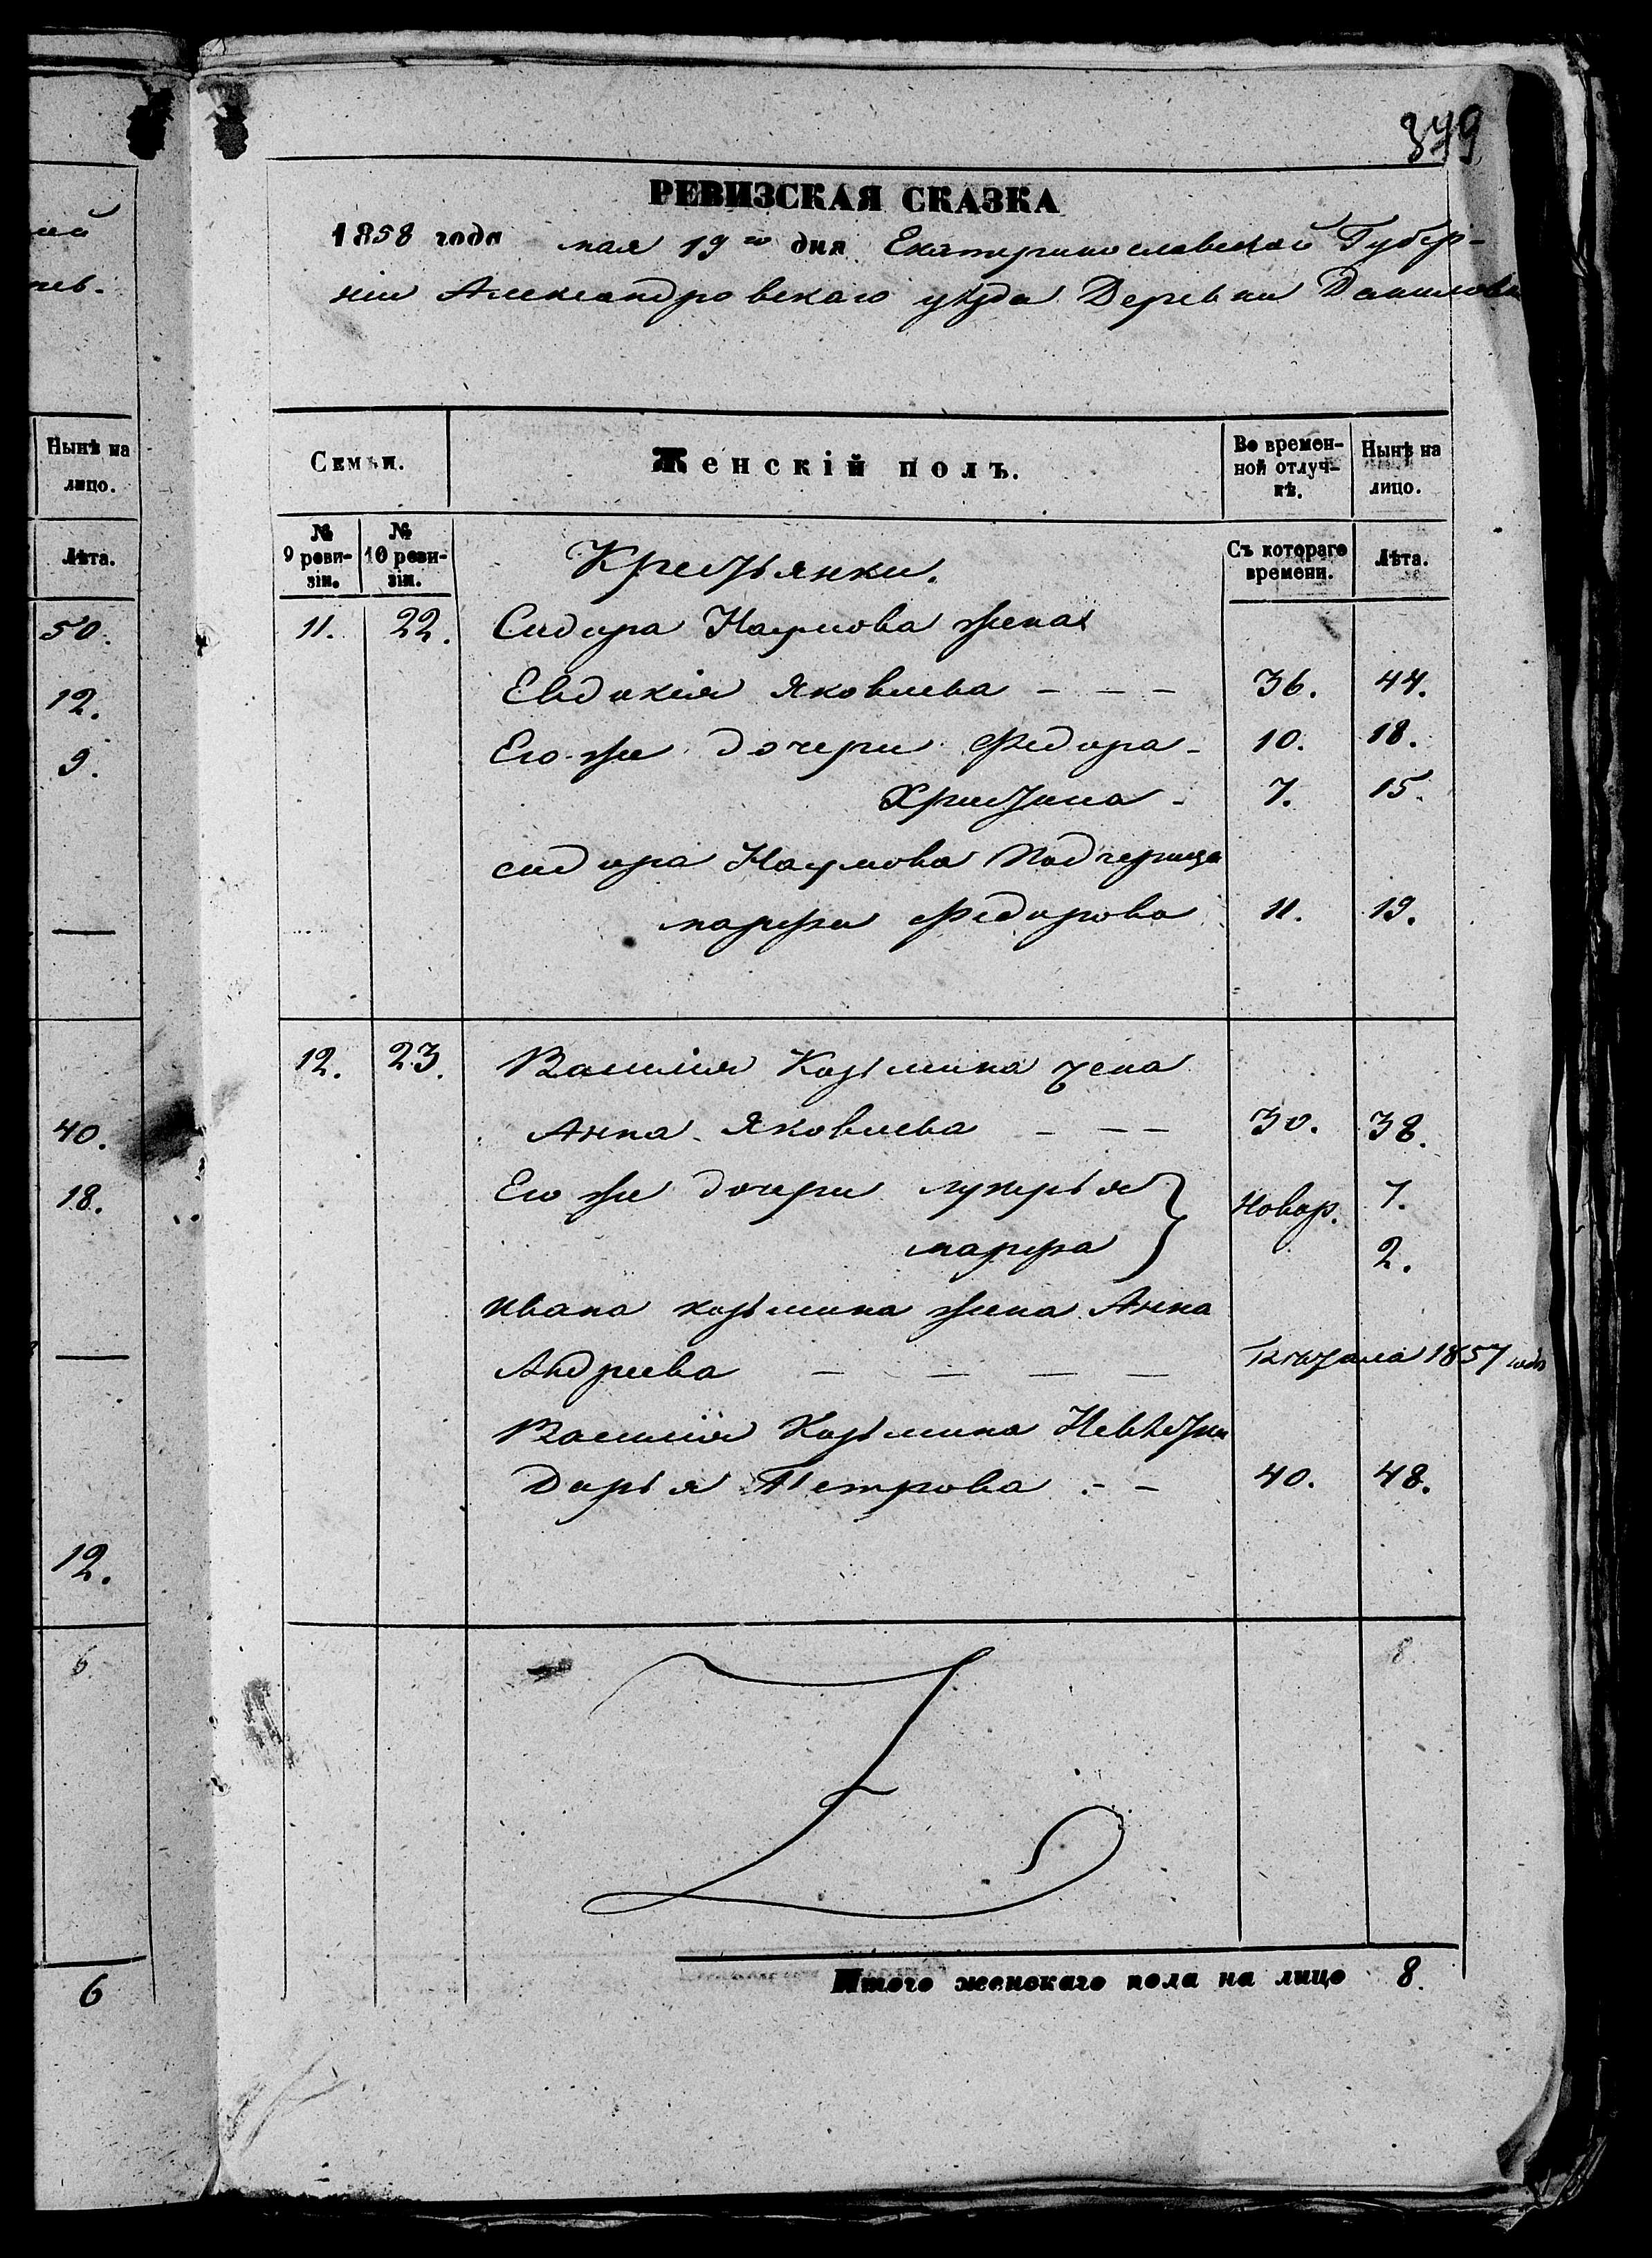 ий
нь.
Нынѣ на
лицо.
Лѣта.
50.
12.
9.
40.
18.
12.
6.
6
879
РЕВИЗСКАЯ СКАЗКА
1858 года мая 19го дня Екатеринославской Губер-
ніи Александровскаго уѣзда Деревни Данилов
Семьи. Женскій полъ. Во времен- Нынѣ на
ной отлуч- лицо.
кѣ.
№ №
9 реви- 10 реви- Съ котораго Лѣта.
зіи. зіи. времени.
Крестьянки.
11. 22. Сидора Наумова жена
Евдокія Яковлева - - - 36. 44.
Его же дочери Федора - 10. 18.
Христина - 7. 15.
сидора Наумова Падчерица
марфа федорова 11. 19.
12. 23. Василія Козьмина жена
Анна Яковлева - - - 30. 38.
Его же дочери лукерья } Новор. 7.
марфа 2.
ивана козьмина жена Анна
Андреева — — — — 1857 года
Василія Козьмина Невѣстка
Дарья Петрова - - 40. 48.
8
Итого женскаго пола на лицо 8.